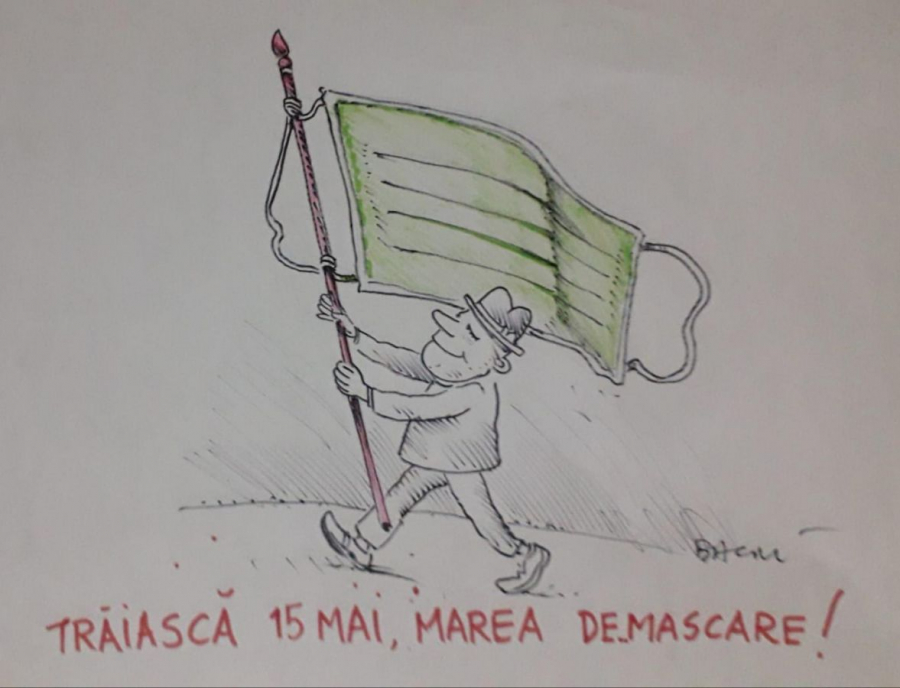 TRĂIASCĂ 15 MAI, MAREA DE_MASCARE!